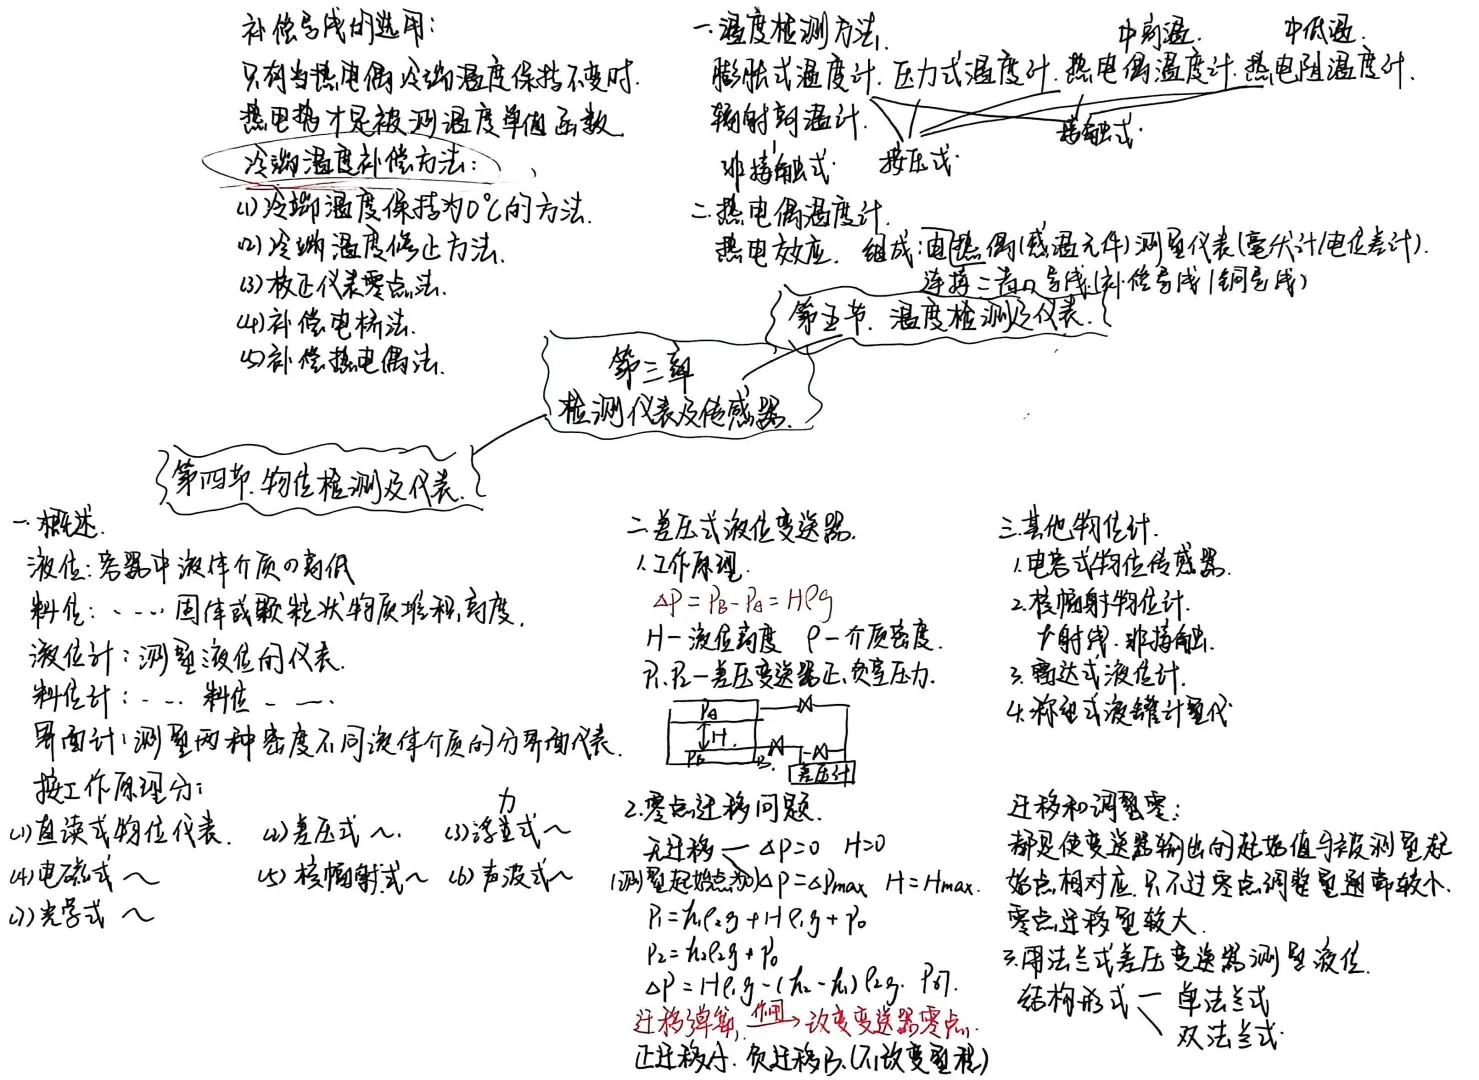 补偿导线的选用:
只有当热电偶冷端温度保持不变时.
热电势才是被测温度单值函数.
冷端温度补偿方法:
(1)冷端温度保持为0℃的方法.
(2)冷端温度修正方法.
(3)校正仪表零点法.
(4)补偿电桥法.
(5)补偿热电偶法.
一.温度检测方法.
中高温. 中低温.
膨胀式温度计.压力式温度计.热电偶温度计.热电阻温度计.
辐射高温计.
接触式.
非接触式. 接压式.
二.热电偶温度计.
热电效应. 组成:电热偶(感温元件)测量仪表(毫伏计/电位差计).
连接二者の导线(补偿导线/铜导线)
第五节.温度检测及仪表.
第三章
检测仪表及传感器.
第四节.物位检测及仪表.
一.概述.
液位:容器中液体介质の高低
料位:- - --- 固体或颗粒状物质堆积高度.
液位计:测量液位的仪表.
料位计:- -- 料位 - - --.
界面计:测量两种密度不同液体介质的分界面仪表.
按工作原理分:
力
(1)直读式物位仪表. (2)差压式~. (3)浮式~
(4)电磁式~ (5)核辐射式~ (6)声波式~
(7)光学式~
二.差压式液位变送器.
1.工作原理.
ΔP=PB-PA=Hρg
H-液位高度 ρ-介质密度.
P1.P2-差压变送器正.负室压力.
PA
H.
PB B.
差压计
2.零点迁移问题.
无迁移-ΔP=0 H=0
(测量起始点为0)ΔP=ΔPmax H=Hmax.
P1=h1ρ2g+Hρ1g+P0
P2=h2ρ2g+P0
ΔP=Hρ1g-(h2-h1)ρ2g.
迁移弹簧,作用→改变变送器零点.
正迁移A.负迁移B.(不改变量程)
三.其他物位计.
1.电容式物位传感器.
2.核辐射物位计.
γ射线.非接触.
3.雷达式液位计.
4.称重式液罐计量仪
迁移和调整零:
都是使变送器输出的起始值与被测量起
始点相对应.只不过零点调整量通常较小.
零点迁移量较大.
3.用法兰式差压变送器测量液位.
结构形式-单法兰式
双法兰式.